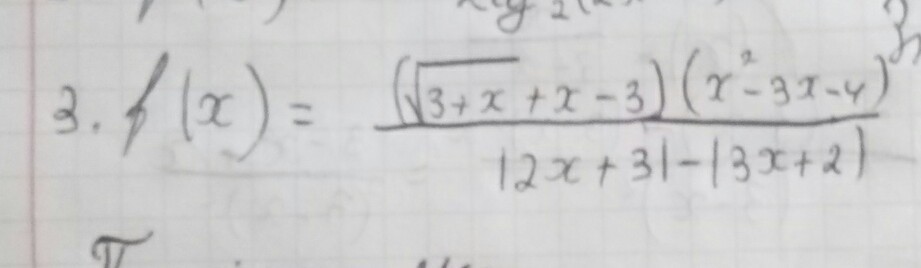 3. f(x) = (√3+x + x - 3)(x² - 3x - 4)
|2x + 3| - |3x + 2|